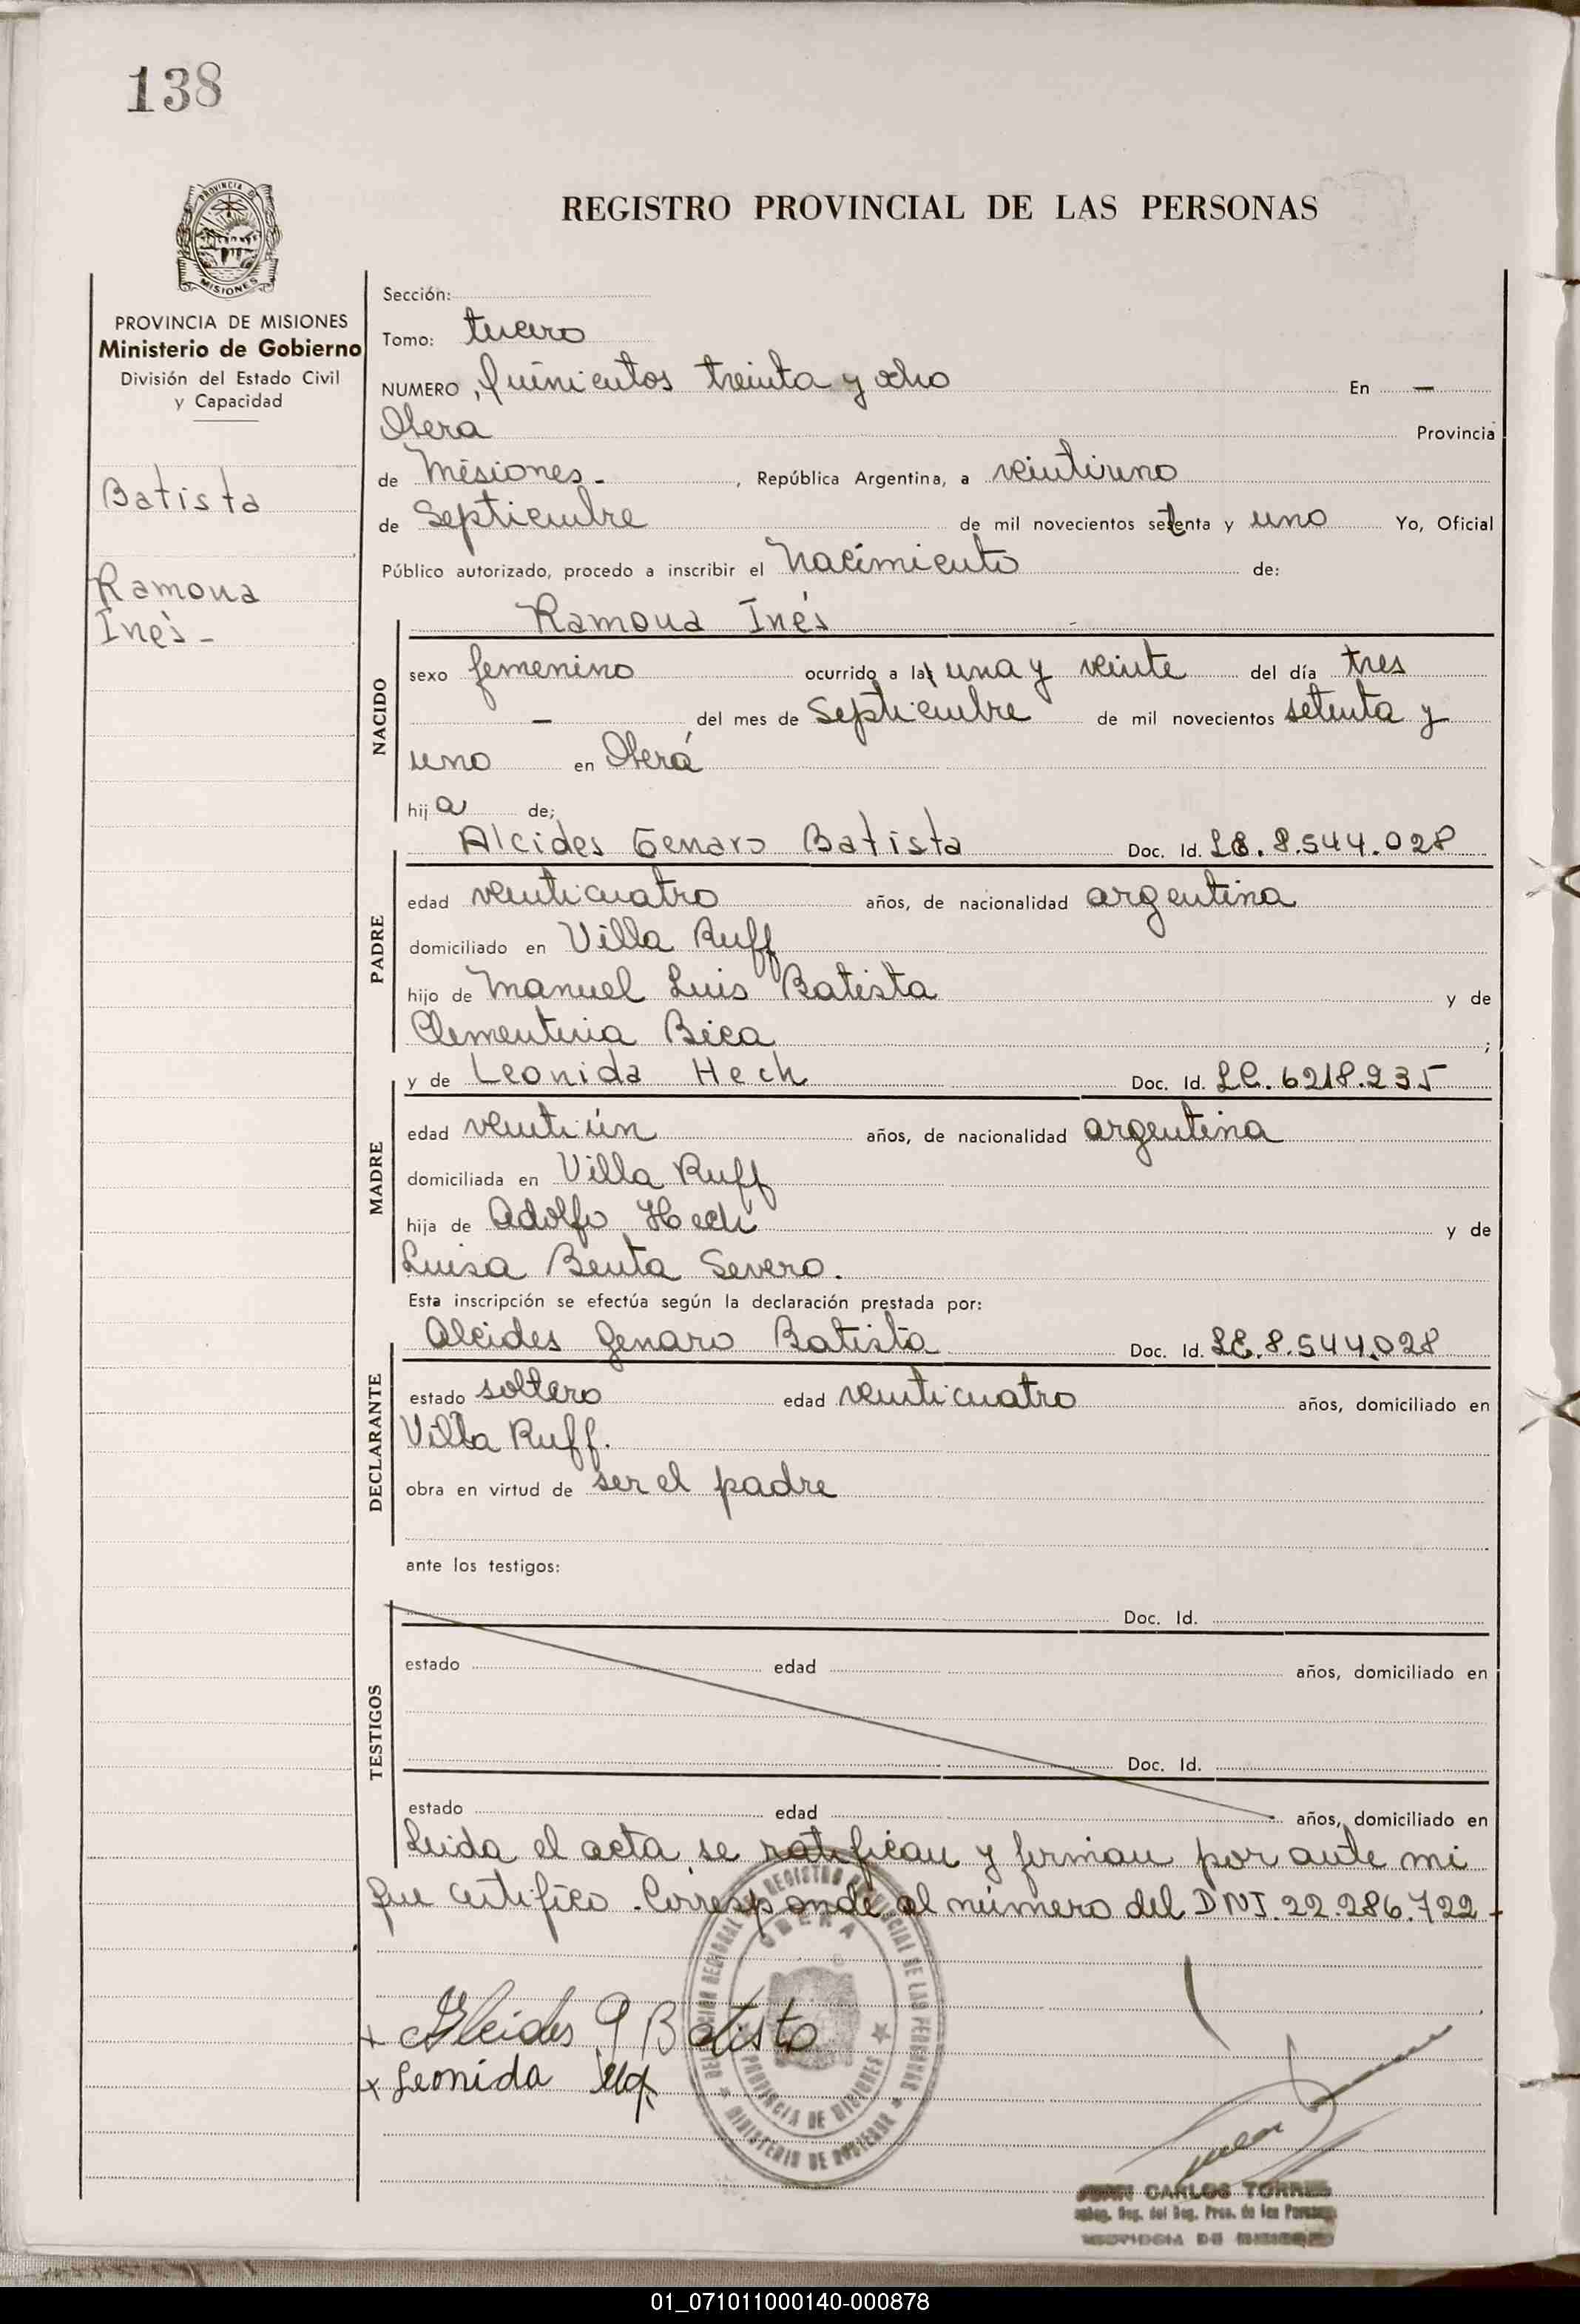 138
PROVINCIA DE
MISIONES
REGISTRO PROVINCIAL DE LAS PERSONAS
PROVINCIA DE MISIONES
Ministerio de Gobierno
División del Estado Civil
y Capacidad
Batista
Ramona
Inés -
Sección:
Tomo: tercero
NUMERO, Quinientos treinta y ocho En —
Obera Provincia
de Misiones - , República Argentina, a veintiuno
de Septiembre de mil novecientos setenta y uno Yo, Oficial
Público autorizado, procedo a inscribir el Nacimiento de:
Ramona Inés
NACIDO
sexo femenino ocurrido a la una y veinte del día tres
— del mes de Septiembre de mil novecientos setenta y
uno en Oberá
hija de;
Alcides Genaro Batista Doc. Id. LE. 8.544.028
PADRE
edad veinticuatro años, de nacionalidad argentina
domiciliado en Villa Ruff
hijo de Manuel Luis Batista y de
Clementina Bica ;
y de Leonida Hech Doc. Id. LC. 6218.235
MADRE
edad veintiún años, de nacionalidad argentina
domiciliada en Villa Ruff
hija de Adolfo Hech y de
Luisa Benta Severo.
Esta inscripción se efectúa según la declaración prestada por:
Alcides Genaro Batista Doc. Id. LE. 8.544.028
DECLARANTE
estado soltero edad veinticuatro años, domiciliado en
Villa Ruff.
obra en virtud de ser el padre
ante los testigos:
TESTIGOS
Doc. Id.
estado edad años, domiciliado en
Doc. Id.
estado edad años, domiciliado en
Leida el acta se ratifican y firman por ante mi
que certifico. Corresponde al número del DNI. 22.286.722 -
x Alcides G Batista
x Leonida
DELEGACIÓN REGIONAL REGISTRO PROVINCIAL DE LAS PERSONAS
OBERA
PROVINCIA DE MISIONES
MINISTERIO DE GOBIERNO
JUAN CARLOS TORRES
Reg. del Reg. Prov. de las Personas
PROVINCIA DE MISIONES
01_071011000140-000878